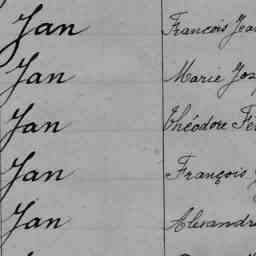 Jan François Jean
Jan Marie Jos
Jan Théodore Fé
Jan François
Jan Alexandre